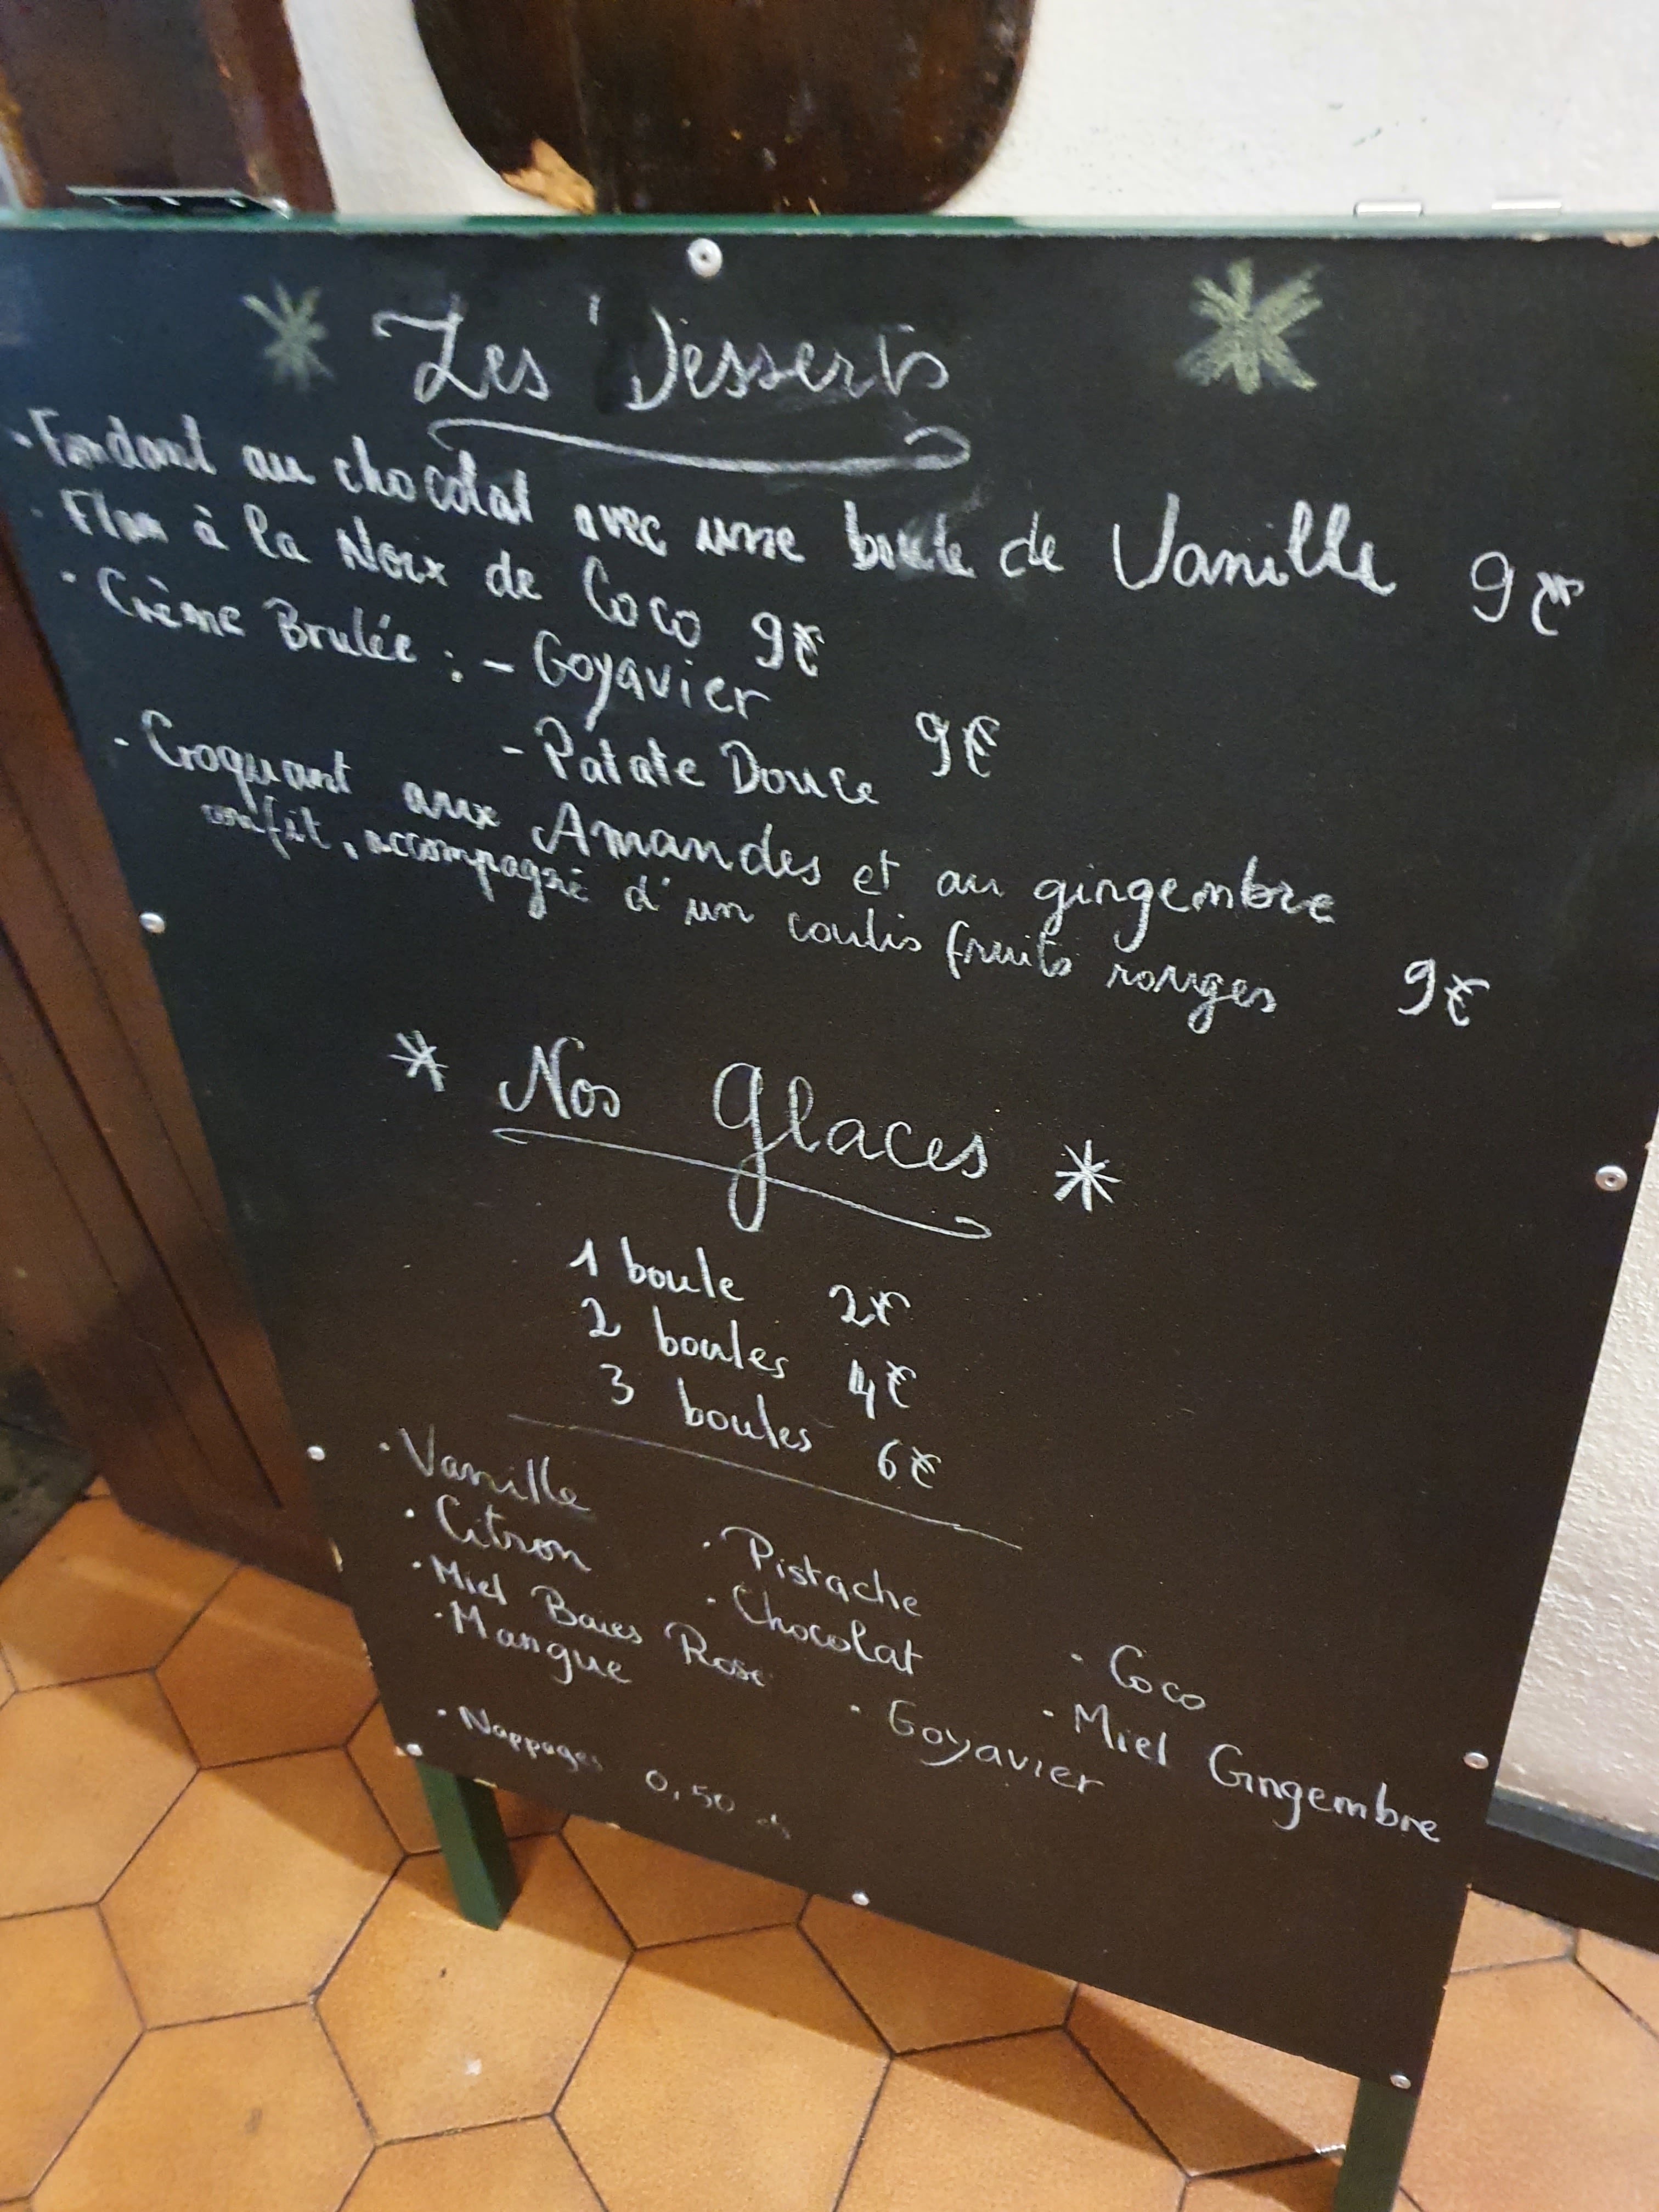 Les Desserts
· Fondant au chocolat avec une boule de Vanille 9€
· Flan à la Noix de Coco 9€
· Crème Brulée : - Goyavier
- Patate Douce 9€
· Croquant aux Amandes et au gingembre
confit, accompagné d'un coulis fruits rouges 9€
* Nos Glaces *
1 boule 2€
2 boules 4€
3 boules 6€
· Vanille
· Citron
· Miel Baies Rose
· Mangue
· Pistache
· Chocolat
· Goyavier
· Coco
· Miel Gingembre
· Nappages 0,50